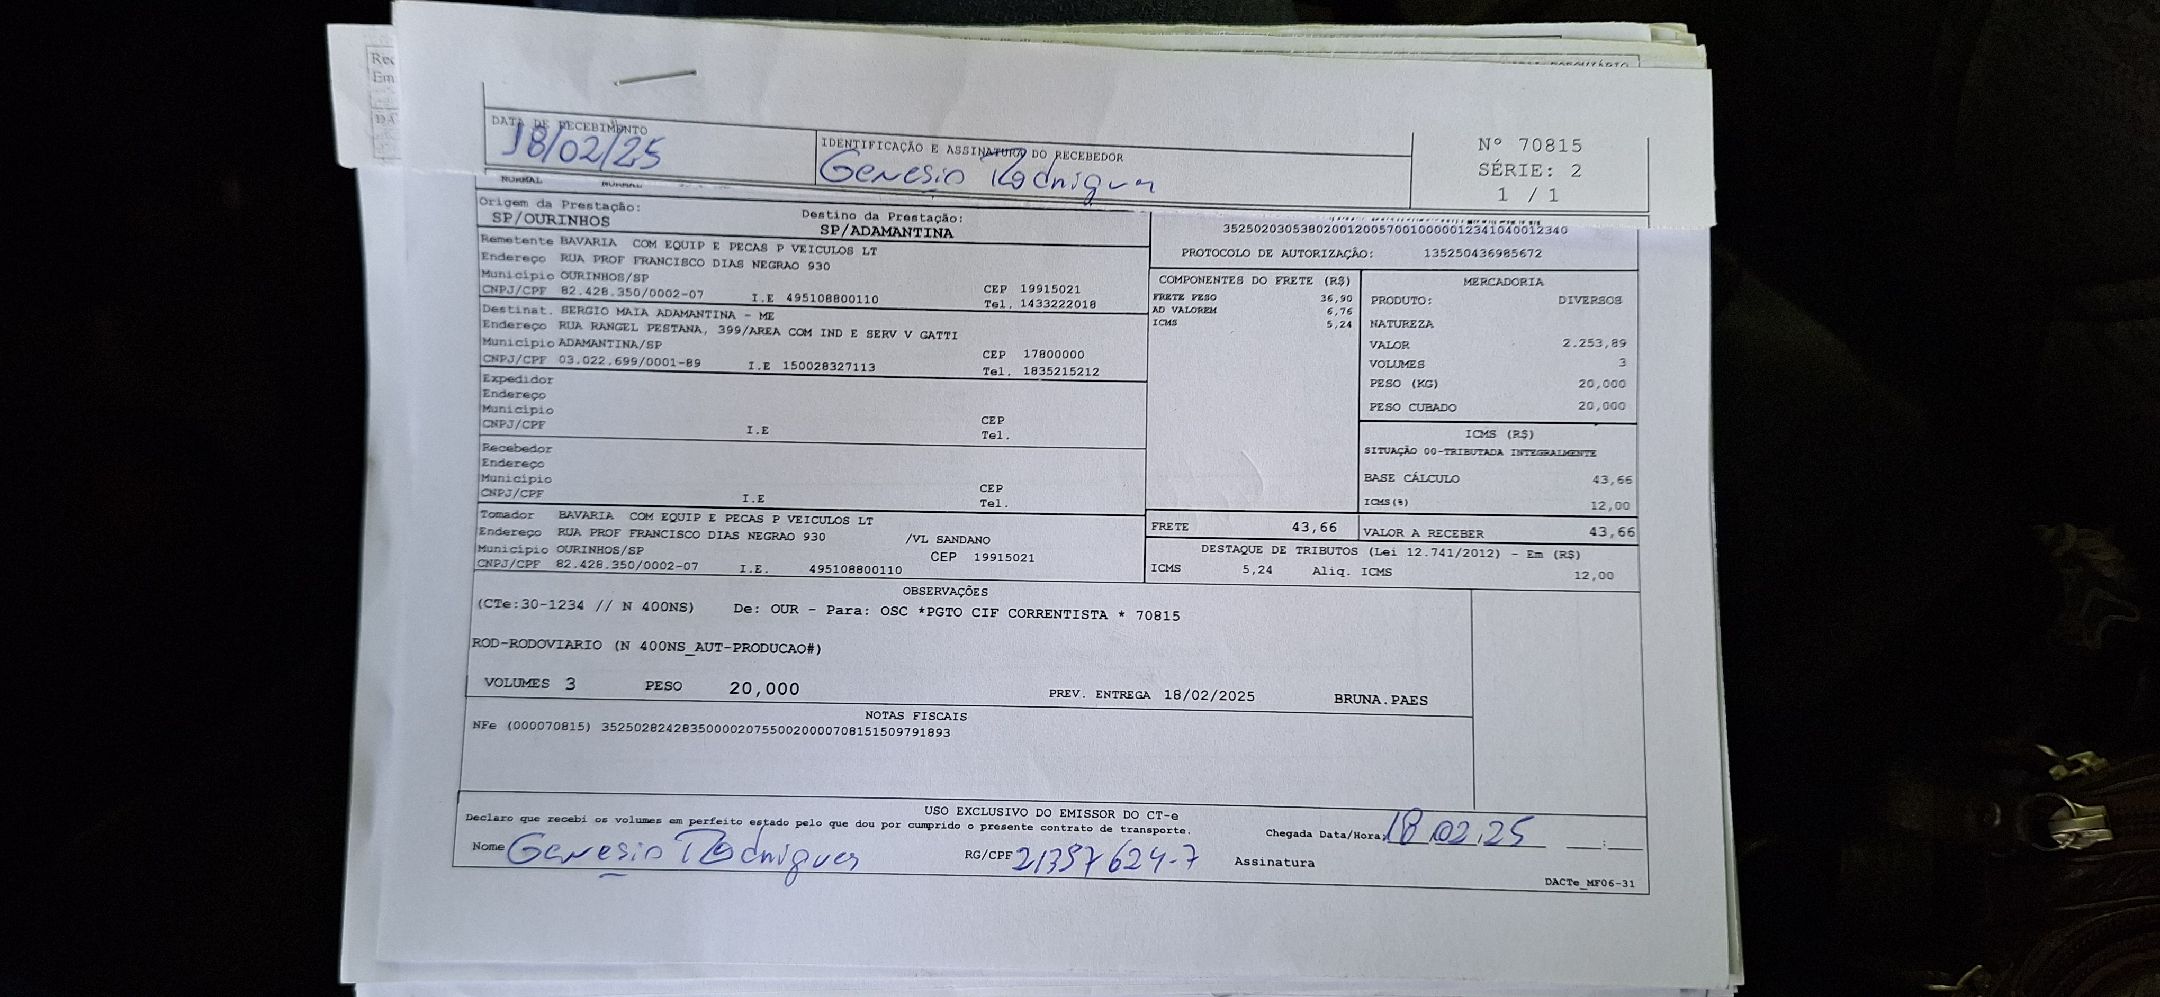 Rec
Em
DA
DATA DE RECEBIMENTO
18/02/25
IDENTIFICAÇÃO E ASSINATURA DO RECEBEDOR
Genesio Rodrigues
Nº 70815
SÉRIE: 2
1 / 1
NORMAL NORMAL
Origem da Prestação:
SP/OURINHOS
Destino da Prestação:
SP/ADAMANTINA
35250203053802001200570010000012341040012340
PROTOCOLO DE AUTORIZAÇÃO: 135250436985672
Remetente BAVARIA COM EQUIP E PECAS P VEICULOS LT
Endereço RUA PROF FRANCISCO DIAS NEGRAO 930
Município OURINHOS/SP CEP 19915021
CNPJ/CPF 82.428.350/0002-07 I.E 495108800110 Tel. 1433222018
Destinat. SERGIO MAIA ADAMANTINA - ME
Endereço RUA RANGEL PESTANA, 399/AREA COM IND E SERV V GATTI
Município ADAMANTINA/SP CEP 17800000
CNPJ/CPF 03.022.699/0001-89 I.E 150028327113 Tel. 1835215212
Expedidor
Endereço
Município CEP
CNPJ/CPF I.E Tel.
Recebedor
Endereço
Município CEP
CNPJ/CPF I.E Tel.
Tomador BAVARIA COM EQUIP E PECAS P VEICULOS LT
Endereço RUA PROF FRANCISCO DIAS NEGRAO 930 /VL SANDANO
Município OURINHOS/SP CEP 19915021
CNPJ/CPF 82.428.350/0002-07 I.E. 495108800110
COMPONENTES DO FRETE (R$)
FRETE PESO 36,90
AD VALOREM 6,76
ICMS 5,24
MERCADORIA
PRODUTO: DIVERSOS
NATUREZA
VALOR 2.253,89
VOLUMES 3
PESO (KG) 20,000
PESO CUBADO 20,000
ICMS (R$)
SITUAÇÃO 00-TRIBUTADA INTEGRALMENTE
BASE CÁLCULO 43,66
ICMS(%) 12,00
FRETE 43,66
VALOR A RECEBER 43,66
DESTAQUE DE TRIBUTOS (Lei 12.741/2012) - Em (R$)
ICMS 5,24 Aliq. ICMS 12,00
OBSERVAÇÕES
(CTe:30-1234 // N 400NS) De: OUR - Para: OSC *PGTO CIF CORRENTISTA * 70815
ROD-RODOVIARIO (N 400NS_AUT-PRODUCAO#)
VOLUMES 3 PESO 20,000 PREV. ENTREGA 18/02/2025 BRUNA.PAES
NOTAS FISCAIS
NFe (000070815) 35250282428350000207550020000708151509791893
USO EXCLUSIVO DO EMISSOR DO CT-e
Declaro que recebi os volumes em perfeito estado pelo que dou por cumprido o presente contrato de transporte.
Chegada Data/Hora: 18.02.25 __:__
Nome Genesio Rodrigues RG/CPF 21357624-7 Assinatura
DACTe_MF06-31